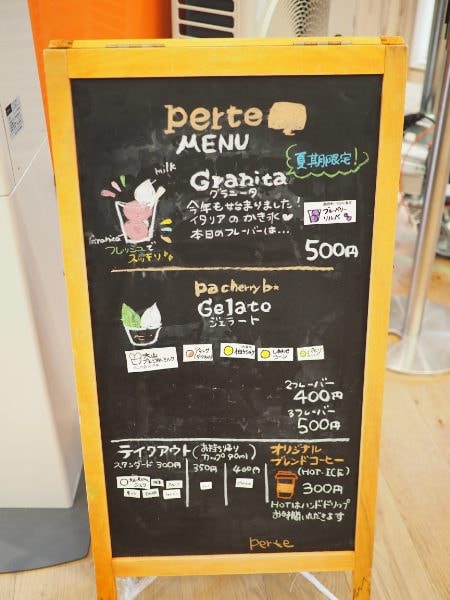 perte
MENU
夏期限定!
milk
Granita
グラニータ
今年も始まりました!
イタリアのかき氷♥
本日のフレーバーは…
ブルーベリー
ソルベ
500円
Granita
フレッシュで
スッキリ♪
pacherry b★
Gelato
ジェラート
大山
プレミアムミルク
2フレーバー
400円
3フレーバー
500円
テイクアウト(お持ち帰り カップ90ml)
スタンダード 300円 350円 400円
オリジナル
ブレンドコーヒー
(HOT・ICE)
300円
HOTはハンドドリップ
お時間いただきます
perte